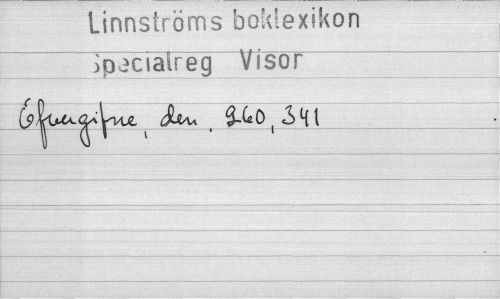 Linnströms boklexikon
Specialreg Visor
Öfvergifne, den. 260, 341